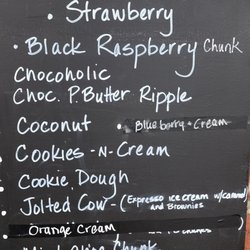 • Strawberry
• Black Raspberry Chunk
Chocoholic
Choc. P. Butter Ripple
Coconut • Blueberry + Cream
Cookies -N- Cream
Cookie Dough
Jolted Cow - (Espresso ice cream w/caramel
and Brownies
Orange Cream
Chunk